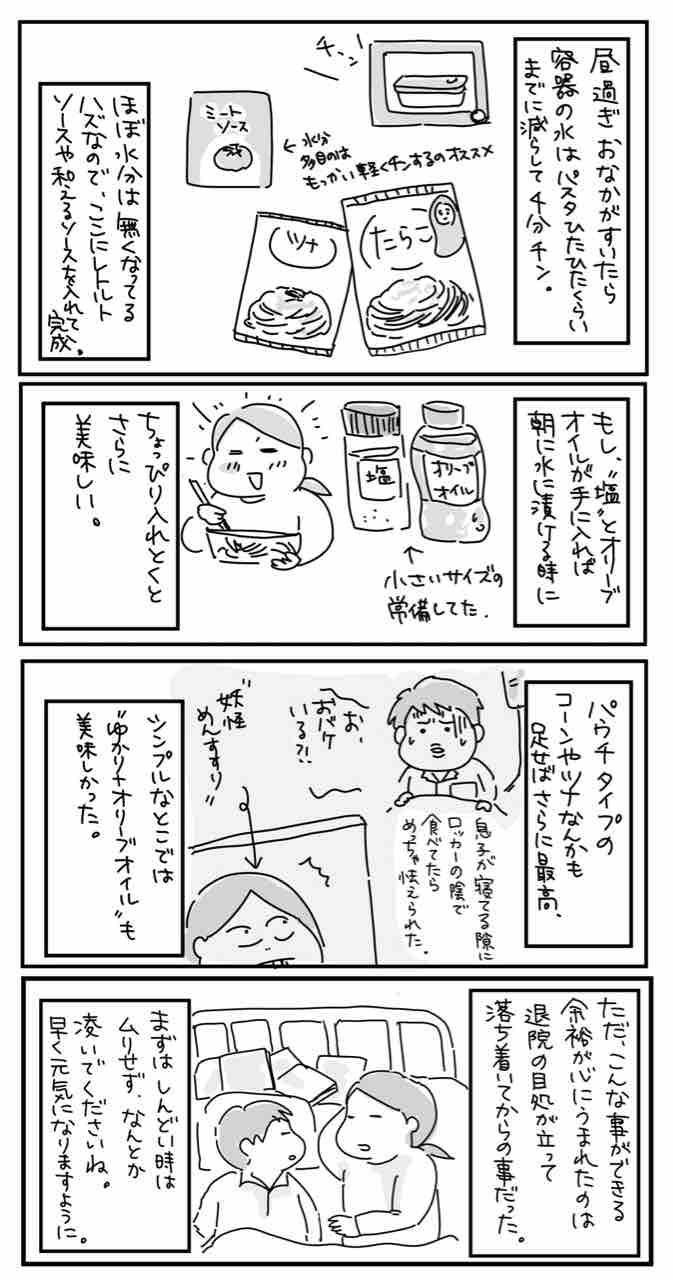 昼過ぎ おなかがすいたら
容器の水はパスタひたひたくらい
までに減らして4分チン。
チーン!
ミート
ソース
←水分
多目のは
もっかい軽くチンするのオススメ
たらこ
ツナ
ほぼ水分は無くなってる
ハズなので、ここにレトルト
ソースや和えるソースを入れて
完成。
もし、"塩"とオリーブ
オイルが手に入れば
朝に水に漬ける時に
オリーブ
オイル
塩
↑
小さいサイズの
常備してた.
ちょっぴり入れとくと
さらに
美味しい。
パウチタイプの
コーンやツナなんかも
足せばさらに最高.
お、
おバケ
いる?!
"妖怪
めんすすり"
息子が寝てる隙に
ロッカーの陰で
食べてたら
めっちゃ怯えられた.
シンプルなとこでは
"ゆかり+オリーブオイル"も
美味しかった。
ただ、こんな事ができる
余裕が心にうまれたのは
退院の目処が立って
落ち着いてからの事だった。
まずはしんどい時は
ムリせず、なんとか
凌いでくださいね。
早く元気になりますように。